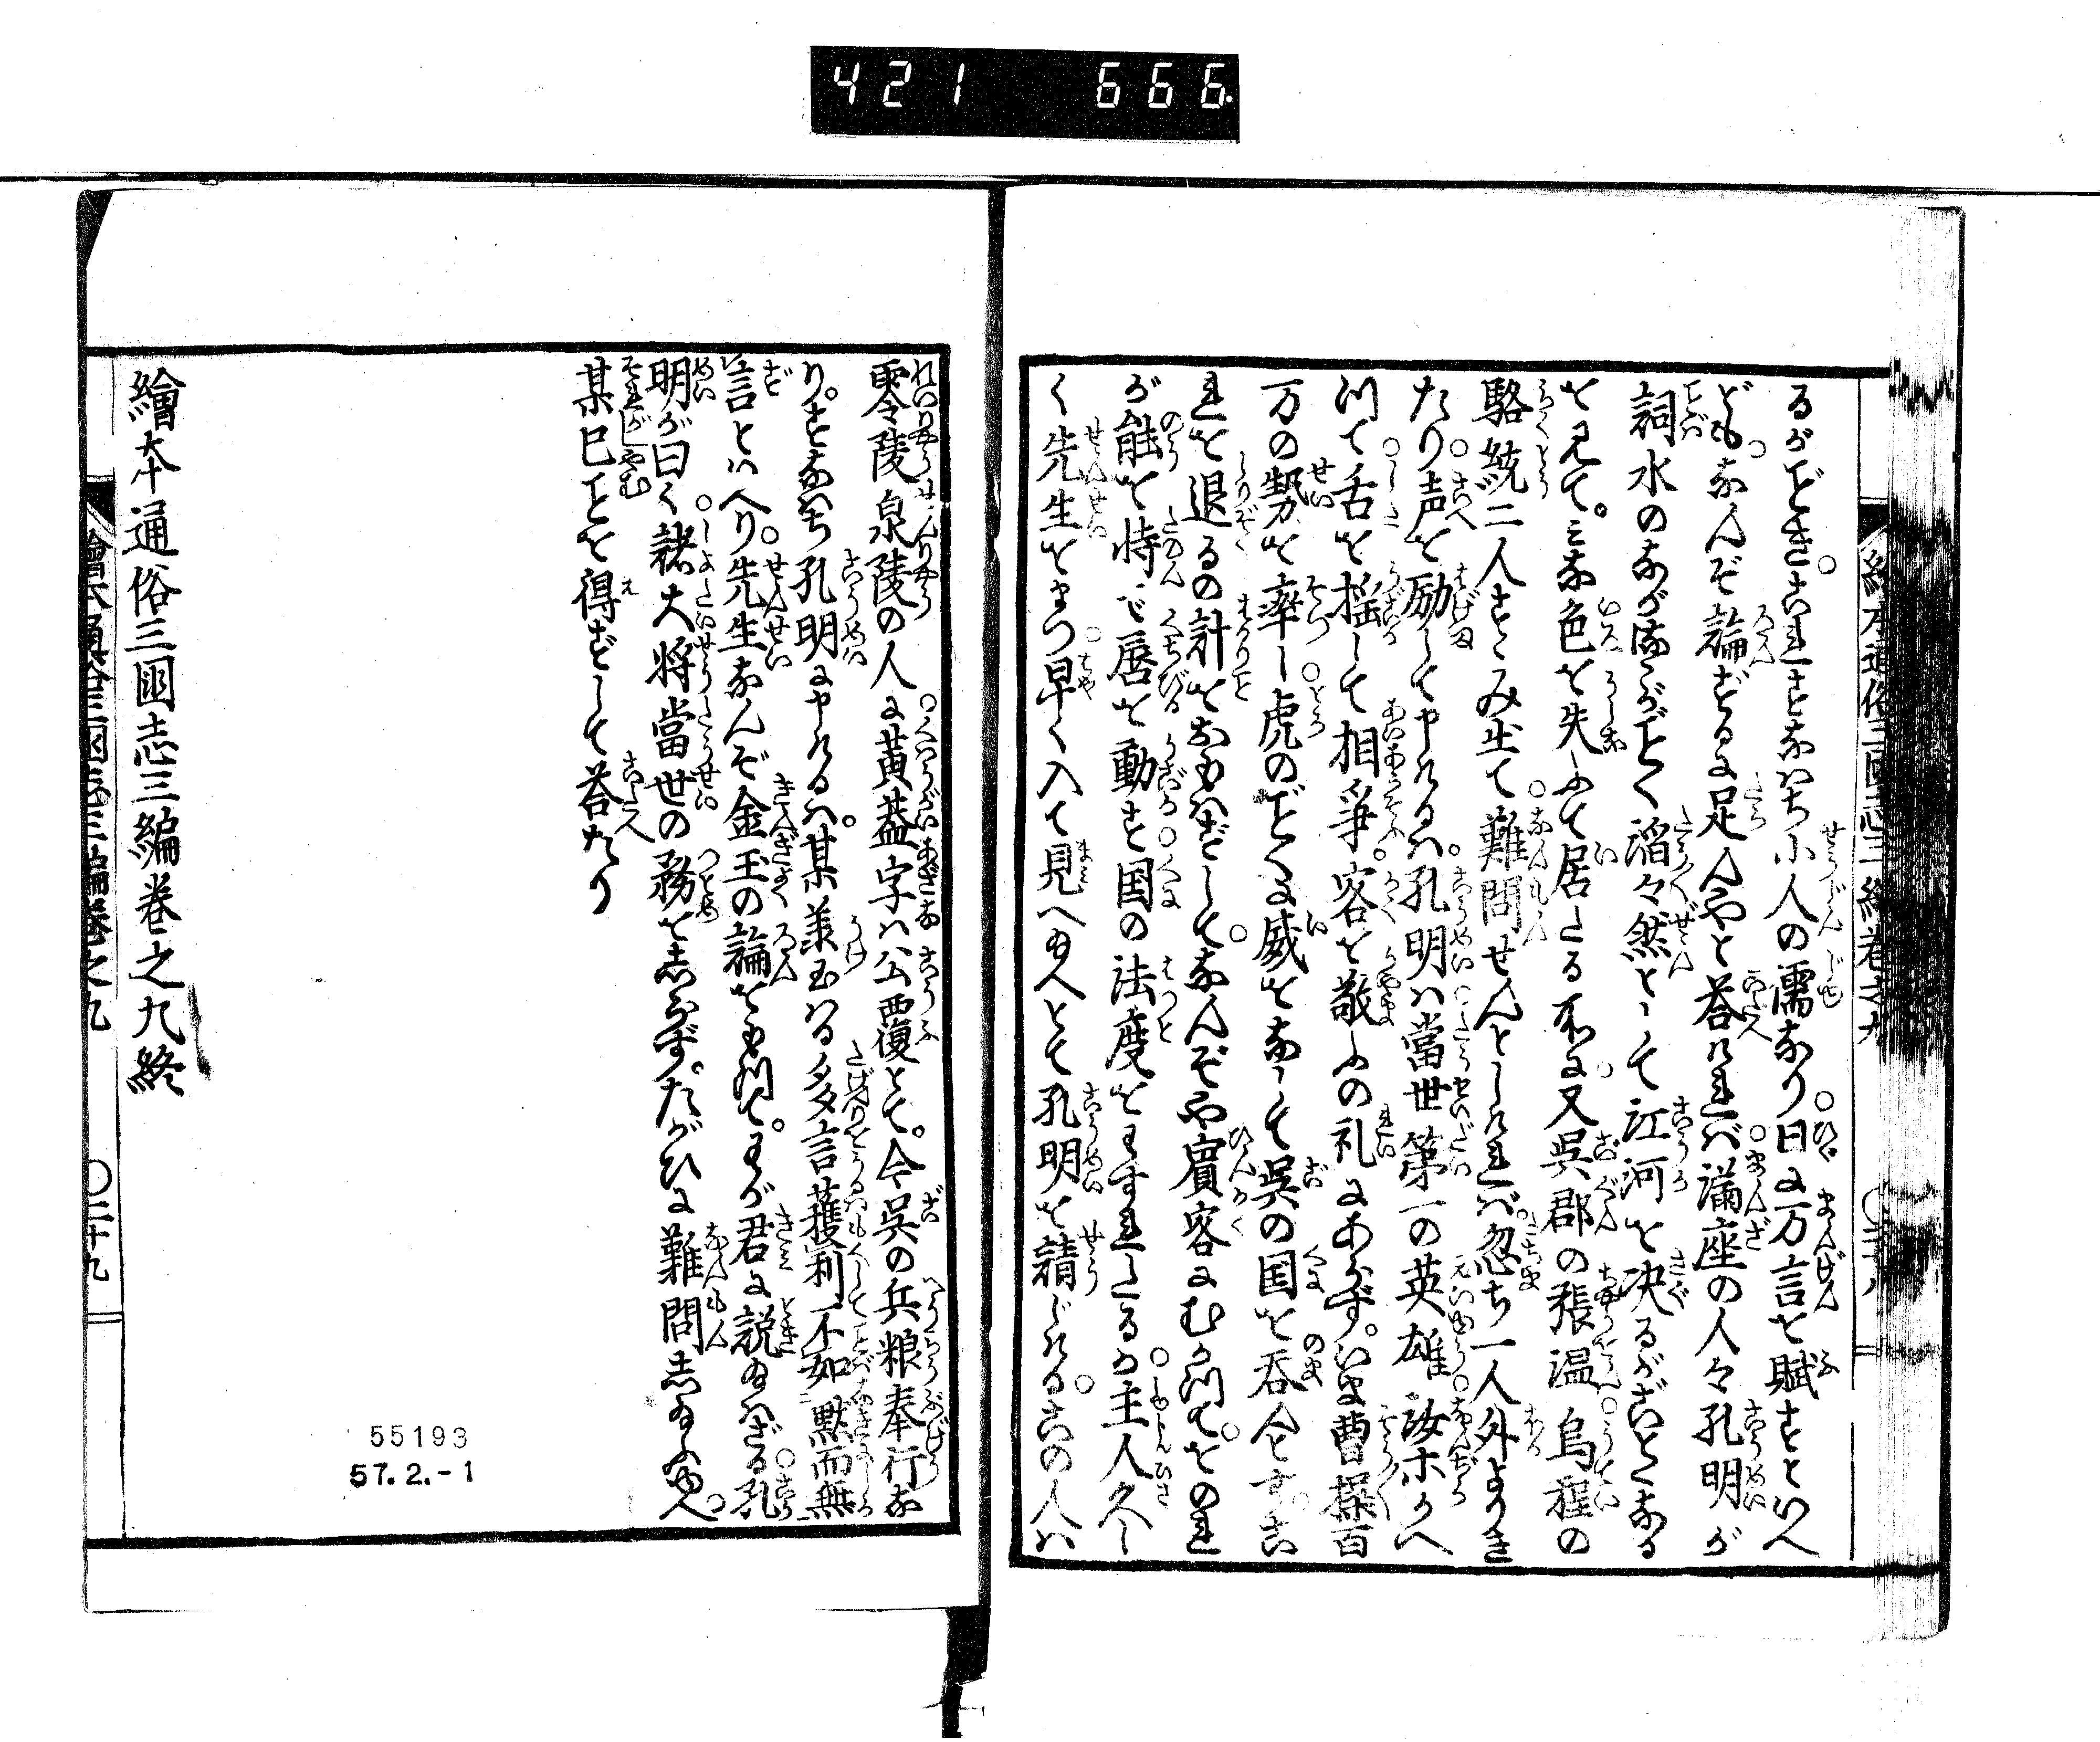 421 666
繪本通俗三國志三編巻之九 〇二十八
るがごとき。これすなはち小人の儒なり。日に万言を賦すといへ
ども。なんぞ論ずるに足んやと答ければ。満座の人々孔明が
詞水のながるゝがごとく滔々然として江河を决るがごとくなる
を見て。みな色を失ふて居たる所に。又呉郡の張温烏程の
駱統二人すゝみ出て難問せんとしければ。忽ち一人外よりき
たり声を励して申けるハ。孔明ハ當世第一の英雄汝ホかへ
つて舌を揺して相爭。客を敬ふの礼にあらず。いま曹操百
万の勢を率し虎のごとくに威をなして呉の国を呑んとす。こ
れを退るの計をおもハずして。なんぞや賓客にむかつて。をのれ
が能を恃ミ唇を動す。国の法度をわすれたるか主人久し
く先生をまつ早く入て見へ給へとて孔明を請じける。この人ハ
零陵泉陵の人に黄蓋字ハ公覆とて。今呉の兵粮奉行な
り。すなハち孔明に申けるハ。某羕玉ハる多言獲利不如黙而無
言とハへり先生なんぞ金玉の論をもつて。わが君に説給ハざる孔
明が曰く諸大将當世の務をしらず。たがひに難問し給ふゆへ。
某巳ことを得ずして答たり
繪本通俗三國志三編巻之九終
繪本通俗三國志三編巻之九 〇二十九
55193
57.2.-1